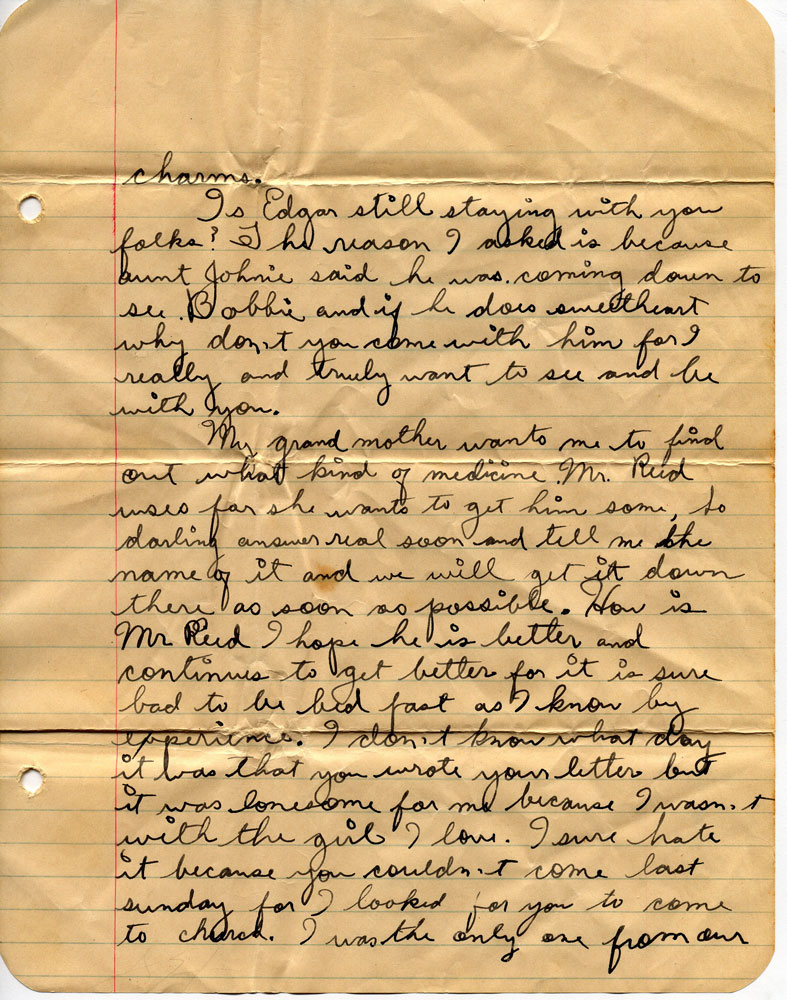 charms.
Is Edgar still staying with you
folks? The reason I asked is because
aunt Johnie said he was coming down to
see Bobbie and if he does sweetheart
why don't you come with him for I
really and truely want to see and be
with you.
My grand mother wants me to find
out what kind of medicine Mr. Reed
uses for she wants to get him some, so
darling answer real soon and tell me the
name of it and we will get it down
there as soon as possible. How is
Mr Reed I hope he is better and
continues to get better for it is sure
bad to be bed fast as I know by
experience. I don't know what day
it was that you wrote your letter but
it was lonesome for me because I wasn't
with the girl I love. I sure hate
it because you couldn't come last
sunday for I looked for you to come
to church. I was the only one from our